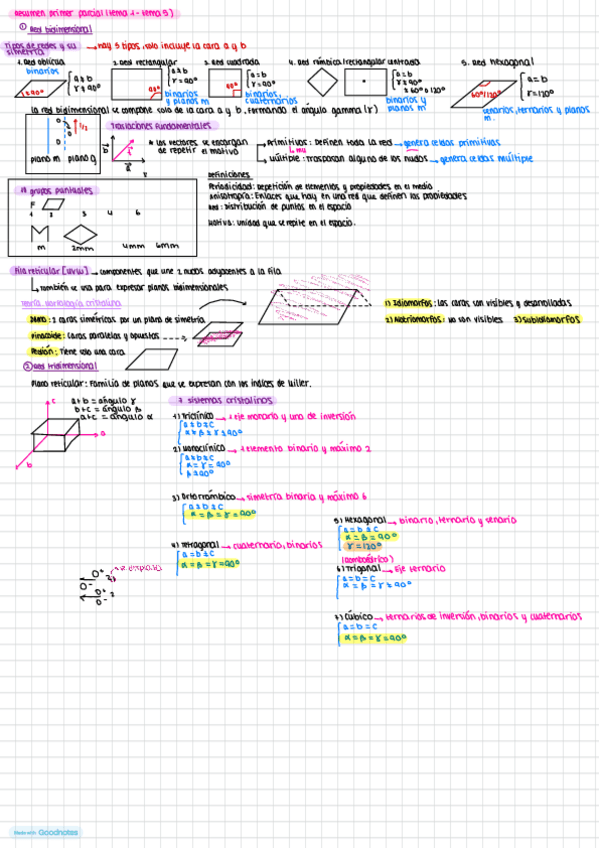 Resumen primer parcial (tema 1 - tema 5)
① Red bidimensional
Tipos de redes y su simetría → Hay 5 tipos, solo incluye la cara a y b
1. Red oblicua
binarios
a≠b
γ≠90°
2. Red rectangular
a≠b
γ=90°
90°
binarios y planos m
3. Red cuadrada
a=b
γ=90°
90°
binarios, cuaternarios
4. Red rómbica/rectangular centrada
a=b
γ=90°
≠60°≠120°
binarios y planos m
5. Red hexagonal
60°/120°
a=b
γ=120°
senarios, ternarios y planos m
La red bidimensional se compone solo de la cara a y b, formando el ángulo gamma (γ)
plano m plano g
1/2
Traslaciones fundamentales
* Los vectores se encargan de repetir el motivo
→ Primitivas: Definen toda la red → genera celdas primitivas
→ Múltiple: Traspasan alguno de los nudos → genera celdas múltiple
Definiciones
Periodicidad: Repetición de elementos y propiedades en el medio
Anisotropía: Enlaces que hay en una red que definen las propiedades
Red: distribución de puntos en el espacio
Motivo: unidad que se repite en el espacio.
10 grupos puntuales
F
1 2 3 4 6
m 2mm 4mm 6mm
Fila reticular [uvw] → componentes que une 2 nudos adyacentes a la fila
↳ También se usa para expresar planos bidimensionales
Teoría morfología cristalina
Domo: 2 caras simétricas por un plano de simetría
Pinacoide: Caras paralelas y opuestas
Pedión: Tiene solo una cara
1) Idiomorfos: las caras son visibles y desarrolladas
2) Alotriomorfos: no son visibles 3) Subidiomorfos
② Red tridimensional
Plano reticular: Familia de planos que se expresan con los índices de Miller.
c
a
b
a+b = ángulo γ
b+c = ángulo β
a+c = ángulo α
7 sistemas cristalinos
1) Triclínico → 1 eje monario y uno de inversión
a≠b≠c
α≠β≠γ≠90°
2) Monoclínico → 1 elemento binario y máximo 2
a≠b≠c
α=γ=90°
β≠90°
3) Ortorrómbico → simetría binaria y máximo 6
a≠b≠c
α=β=γ=90°
4) Tetragonal → cuaternario, binarios
a=b≠c
α=β=γ=90°
5) Hexagonal → binario, ternario y senario
a=b≠c
α=β=90°
γ=120°
(romboédrico)
6) Trigonal → Eje ternario
a=b=c
α=β=γ≠90°
7) Cúbico → ternarios de inversión, binarios y cuaternarios
a=b=c
α=β=γ=90°
Made with Goodnotes